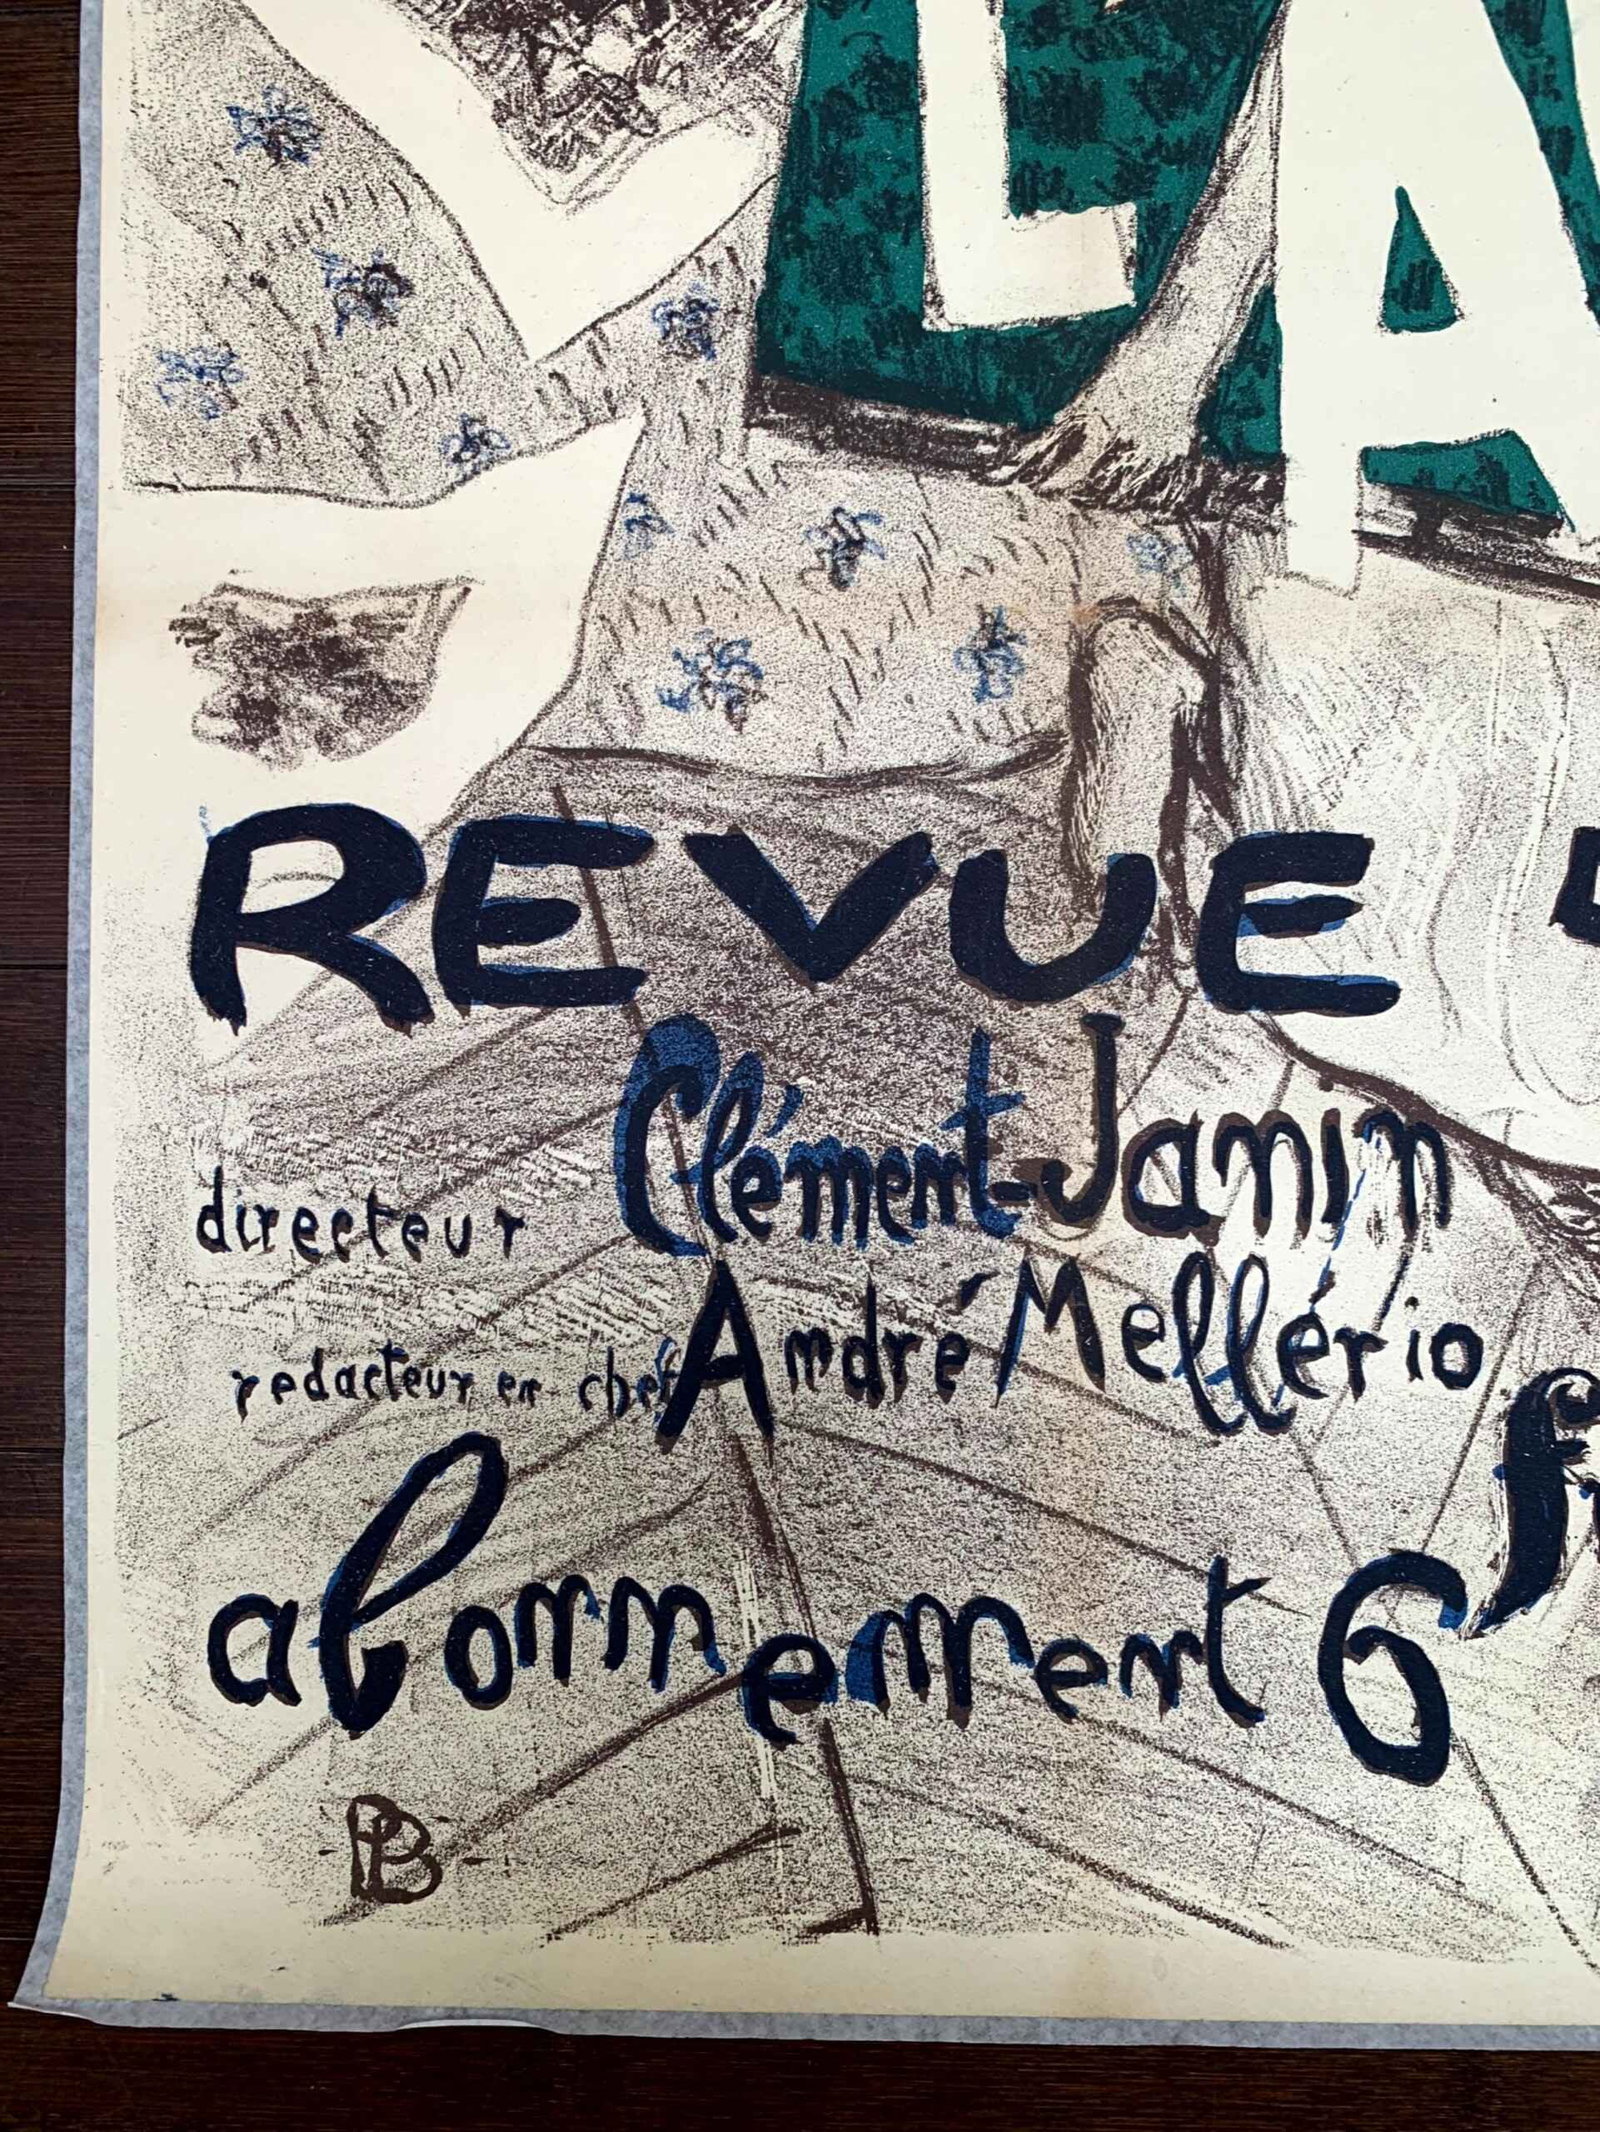 LA
REVUE
directeur Clément-Janin
redacteur en chef André Mellério
abonnement 6 f
PB